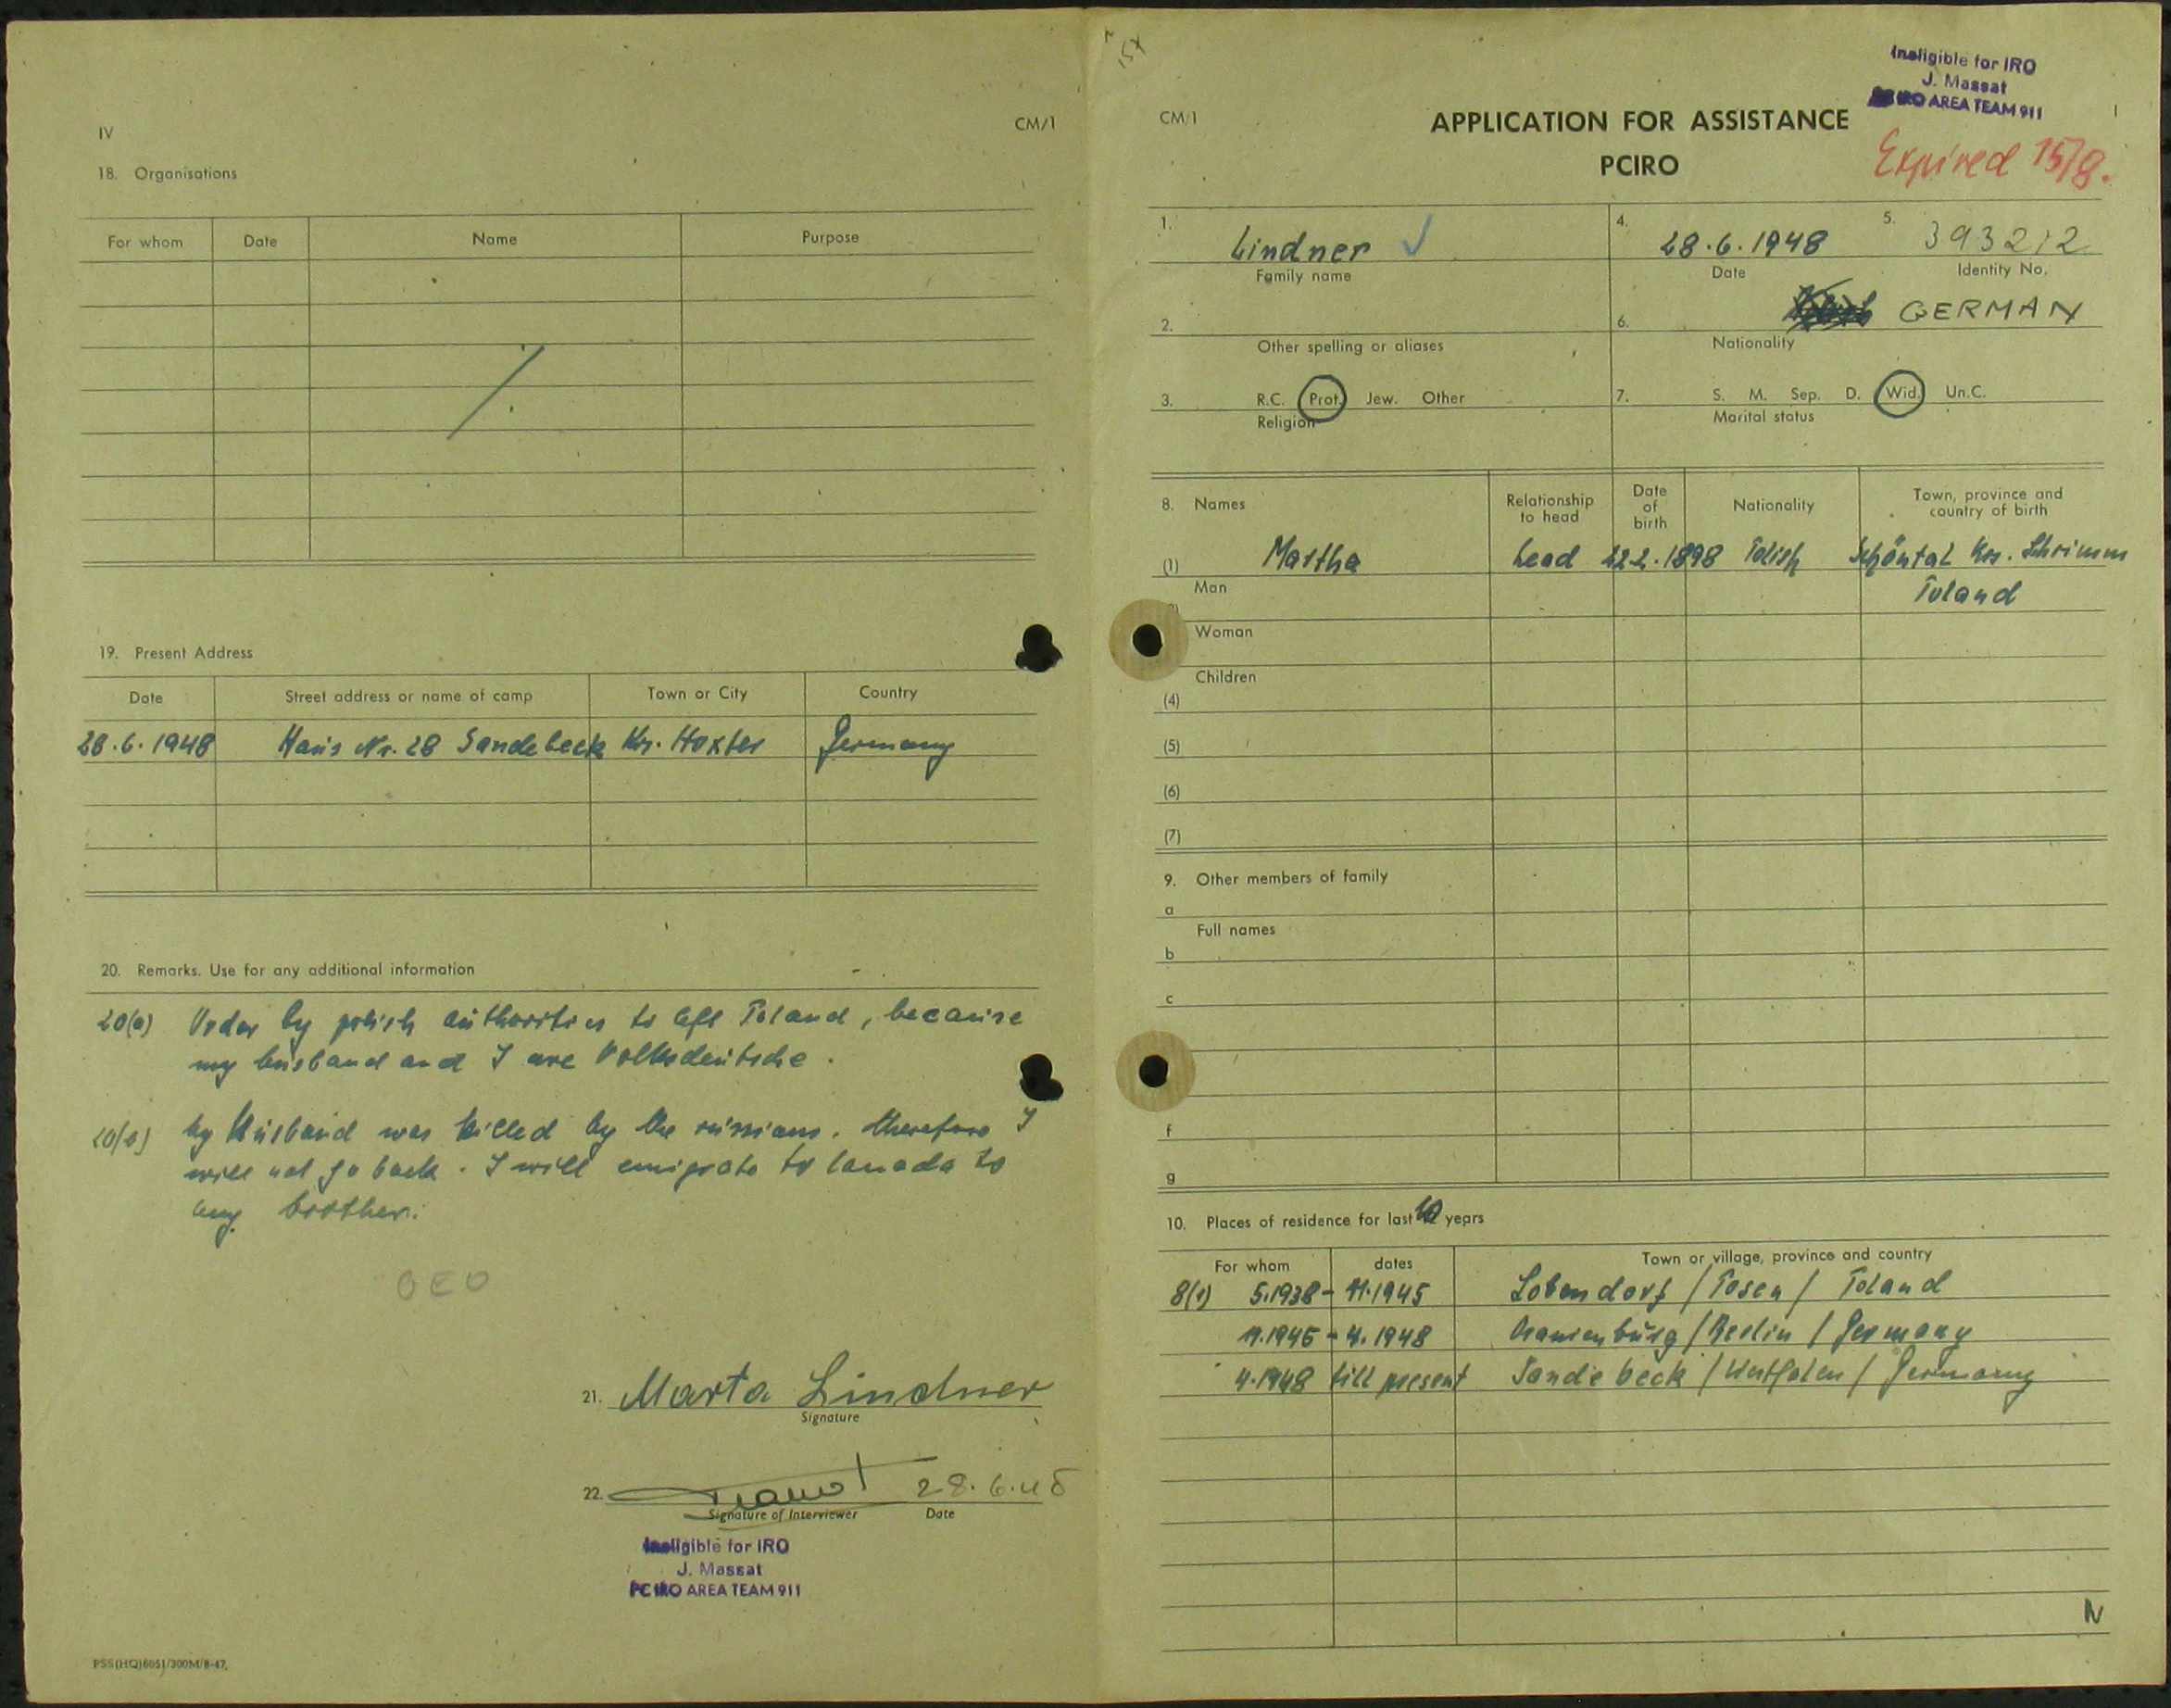 IV
CM/1
18. Organisations
For whom Date Name Purpose
19. Present Address
Date Street address or name of camp Town or City Country
28.6.1948 Haus Nr. 28 Sandebeck Kr. Höxter Germany
20. Remarks. Use for any additional information
20(a) Order by polish authorities to left Poland, because
my husband and I are Volksdeutsche.
20(b) by Husband was killed by the russians. therefore I
will not go back. I will emigrate to Canada to
my brother.
OEO
21. Marta Lindner
Signature
22. 28.6.48
Signature of Interviewer Date
Ineligible for IRO
J. Massat
PCIRO AREA TEAM 911
PSS(HQ)6051/300M/8-47.
CM/1
Ineligible for IRO
J. Massat
PCIRO AREA TEAM 911
I
APPLICATION FOR ASSISTANCE
PCIRO
Expired 15/9.
1. Lindner
Family name
4. 28.6.1948
Date
5. 393212
Identity No.
2.
Other spelling or aliases
6. GERMAN
Nationality
3. R.C. Prot. Jew. Other
Religion
7. S. M. Sep. D. Wid. Un.C.
Marital status
8. Names Relationship to head Date of birth Nationality Town, province and country of birth
(1) Martha head 22.2.1898 Polish Schöntal Krs. Schrimm
Man Poland
Woman
Children
(4)
(5)
(6)
(7)
9. Other members of family
a
Full names
b
c
f
g
10. Places of residence for last 10 years
For whom dates Town or village, province and country
8(1) 5.1938 - 11.1945 Lobendorf / Posen / Poland
11.1945 - 4.1948 Oranienburg / Berlin / Germany
4.1948 till present Sandebeck / Westfalen / Germany
N